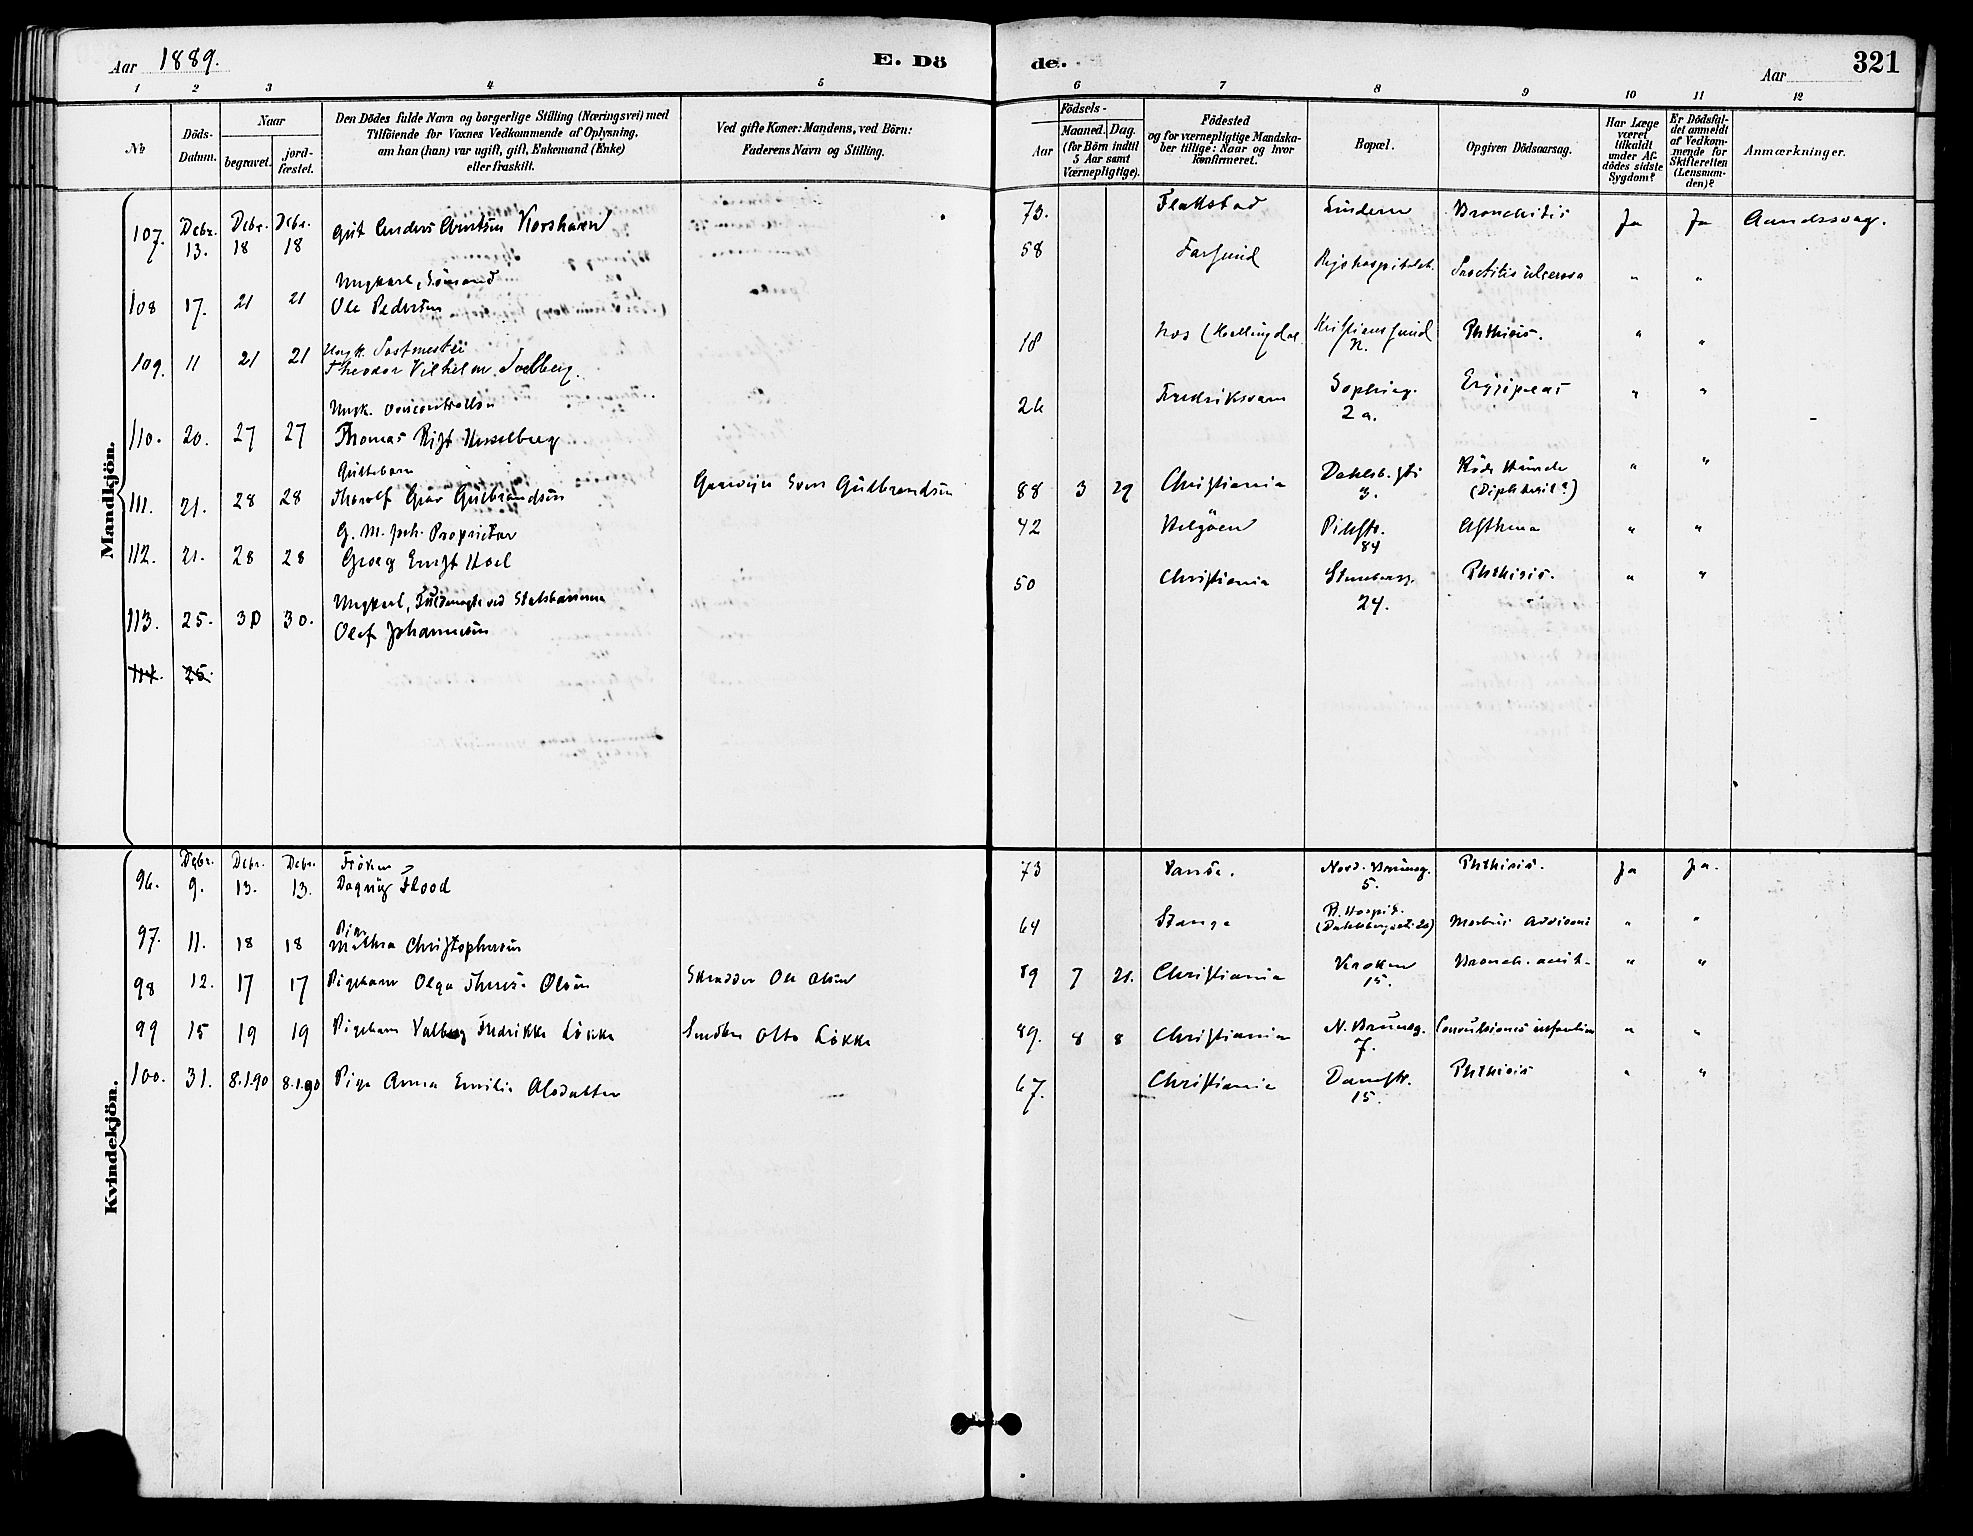 Aar 1889.
E. Dö
de.
Aar
321
1 2 3 4 5 6 7 8 9 10 11 12
No
Döds-
Datum.
Naar
begravet.
jord-
fæstet.
Den Dödes fulde Navn og borgerlige Stilling (Næringsvei) med
Tilföiende for Voxnes Vedkommende af Oplysning,
om han (hun) var ugift, gift, Enkemand (Enke)
eller fraskilt.
Ved gifte Koner: Mandens, ved Börn:
Faderens Navn og Stilling.
Födsels-
Aar
Maaned. Dag.
(for Börn indtil
5 Aar samt
Værnepligtige).
Födested
og for værnepligtige Mandska-
ber tillige: Naar og hvor
konfirmeret.
Bopæl.
Opgiven Dödsaarsag.
Har Læge
været
tilkaldt
under Af-
dödes sidste
Sygdom?
Er Dödsfal-
det anmeldt
af Vedkom-
mende for
Skifteretten
(Lensman-
den)?
Anmærkninger.
Mandkjön.
107. Dcbr. 13. Dcbr. 18 Dcbr. 18 Gut Anders Arntsen Korshavn 73. Flakstad Lindern Bronchitis Ja Ja Aandssvag.
Ungkarl, Sömand
108 17. 21 21 Ole Pedersen 58 Farsund Rigshospitalet. Proctitis ulcerosa " "
Ungk. Postmester
109. 11 21 21 Theodor Vilhelm Solberg. 18 Næs (Hallingdal Kristianssund N. Phthisis. " "
Ungk.
110. 20. 27 27 Thomas Hesselberg 26 Fredriksvärn Sophieg. 2 a. Erysipelas " "
Guttebarn
111. 21. 28 28 Thorolf Gudbrandsen Sven Gudbrandsen 88 3 29 Christiania Dahlsb.sti 3. Röde Hunde (Diphtherit?) " "
G. M. Proprietær
112. 21. 28 28 Georg Ernst Hoel 42 Helgöen Pilestr. 84 Asthma " "
Ungkarl, Fuldmægtig ved Statsbanerne
113. 25. 30 30. Olaf Johannesen 50 Christiania Stensbergg. 24. Phthisis. " "
114. 25.
Kvindekjön.
96. Dcbr. 9. Dcbr. 13. Dcbr. 13. Fröken Dagny Flood 73 Vansö. Nord. Bruunsg. 5. Phthisis. Ja Ja.
97. 11. 18 18 Pige Mathea Christophersen 64 Stange R. Hospit. (Dahlsbergsti 20) Morbus Addisoni " "
98 12. 17 17 Pigebarn Olga Therese Olsen Skrædder Ole Olsen 89 7 21. Christiania Krokken 15. Bronch. acut. " "
99 15 19 19 Pigebarn Valborg Fredrikke Lökke Snedker Otto Lökke 89. 8 8 Christiania N. Bruunsg. 7. Convulsiones infantum " "
100. 31. 8.1.90 8.1.90 Pige Anna Emilie Olsdatter 67. Christiania Damstr. 15. Phthisis " "